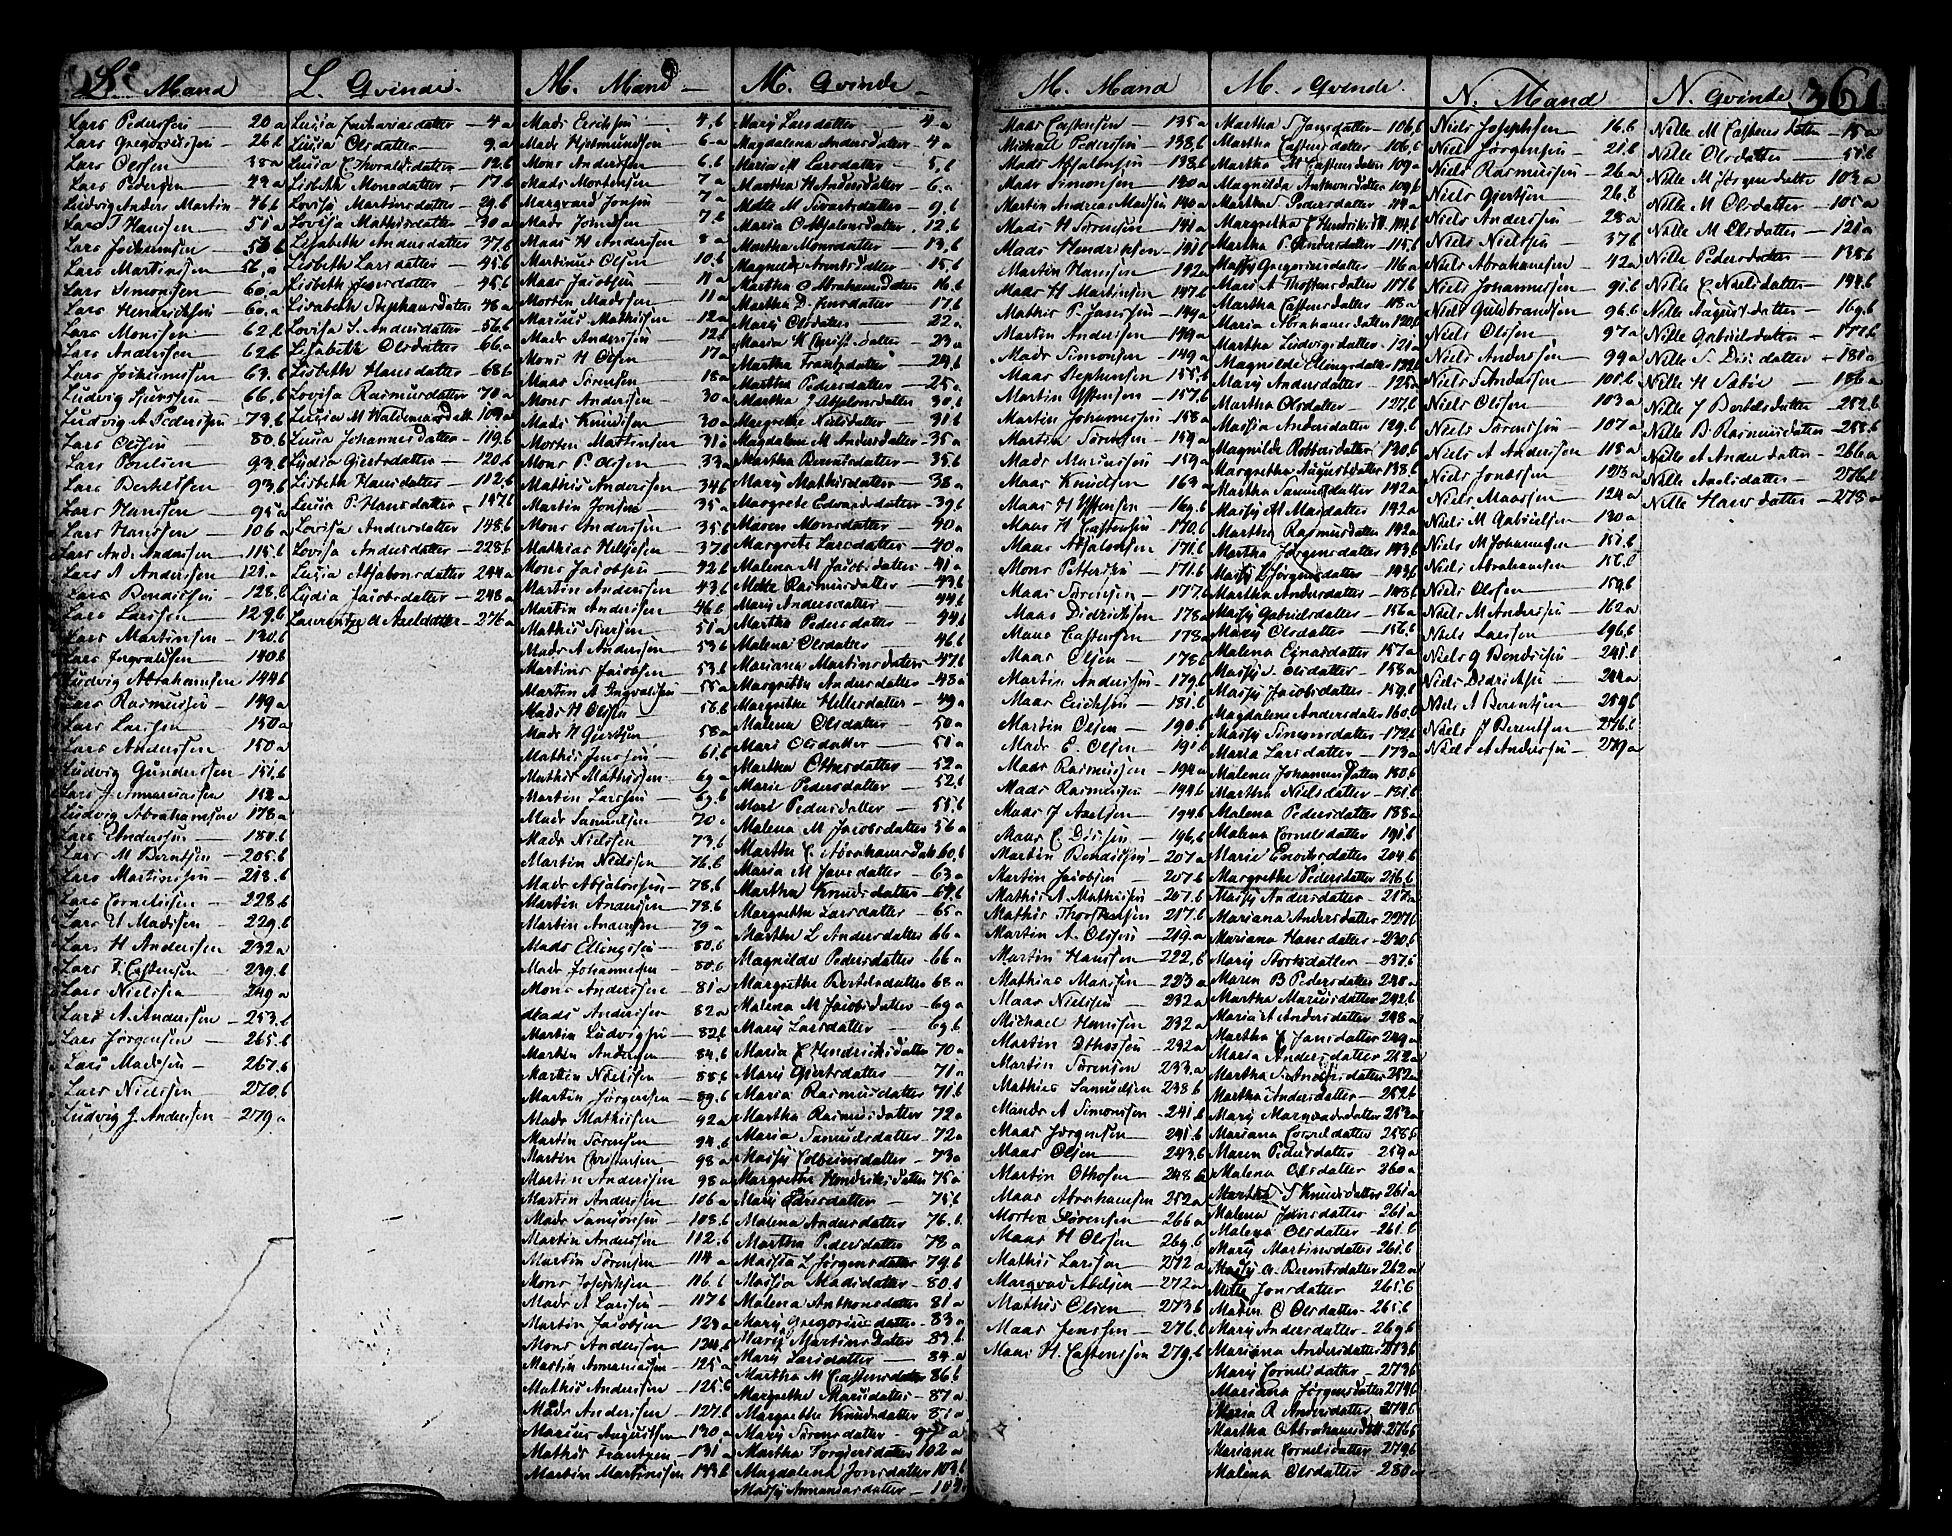 L. Mand
Lars Pedersen — 20 a
Lars Gregoriussen — 26 b
Lars Olssen — 35 a
Lars Pedersen — 49 a
Ludvig Anders Martin — 46 b
Lars T Hanssen — 51 a
Lars Johannesen — 53 b
Lars Martinssen — 56 a
Lars Simonssen — 60 a
Lars Hendrichsen — 60 a
Lars Monssen — 62 b
Lars Anderssen — 62 b
Lars Johannessen — 63 b
Ludvig Sjurssen — 66 b
Ludvig A Pederssen — 79 b
Lars Olssen — 80 b
Lars Poulsen — 93 b
Lars Berthelssen — 93 b
Lars Hanssen — 95 a
Lars Hanssen — 106 a
Lars And. Anderssen — 115 b
Lars A Anderssen — 121 a
Lars Bendixsen — 128 b
Lars Larssen — 129 b
Lars Martinssen — 130 b
Lars Ingvaldssen — 140 b
Ludvig Abrahamssen — 144 b
Lars Rasmussen — 149 a
Lars Larssen — 150 a
Lars Anderssen — 150 a
Ludvig Gunderssen — 151 b
Lars J. Ammaniassen — 152 a
Ludvig Abrahamssen — 178 a
Lars Anderssen — 180 b
Lars M Berntsen — 205 b
Lars Martinssen — 218 b
Lars Cornelissen — 228 b
Lars U Madssen — 229 b
Lars H Anderssen — 232 a
Lars T. Castensen — 239 b
Lars Nielssen — 249 a
Lars A. Anderssen — 253 b
Lars Jørgensen — 265 b
Lars Madssen — 267 b
Lars Nielssen — 270 b
Ludvig J. Anderssen — 279 a
L. Qvinde.
Lusia Zachariasdatter — 4 a
Lusia Olsdatter — 9 a
Lusia C Thoralfsdatter — 12 b
Lisbeth Monsdatter — 17 b
Lovisa Martinsdatter — 29 b
Lovisa Mathisdatter — 30 a
Lisabeth Andersdatter — 37 b
Lisbeth Larsdatter — 45 b
Lisbeth Iversdatter — 45 b
Lisabeth Stephansdatter — 48 a
Lovisa S. Andersdatter — 56 b
Lisabeth Olsdatter — 66 a
Lisbeth Hansdatter — 68 b
Lovisa Rasmusdatter — 70 a
Lusia M Waldemarsdatt — 109 a
Lusia Johannesdatter — 119 b
Lydia Gjertsdatter — 120 b
Lisbeth Hansdatter — 142 b
Lusia P. Hansdatter — 147 b
Lovisa Andersdatter — 148 b
Lovisa Andersdatter — 228 b
Lusia Absalonsdatter — 244 a
Lydia Jacobsdatter — 248 a
Laurentze A Axeldatter — 276 a
M. Mand
Mads Erichsen — 4 b
Mads Hjelmundssen — 6 a
Mons Anderssen — 6 b
Mads Mortensen — 7 a
Margvard Jonsen — 7 a
Mads Jonassen — 7 b
Maas H Anderssen — 8 a
Martinus Olsen — 10 b
Maas Jacobsen — 11 a
Morten Madssen — 11 a
Marius Mathissen — 12 a
Mads Anderssen — 12 b
Mons H Olsen — 17 a
Maas Sørensen — 18 a
Mons Anderssen — 30 a
Mads Knudsen — 30 a
Morten Martinsen — 31 a
Mons P. Olssen — 33 a
Mathis Anderssen — 34 b
Martin Jonsen — 35 a
Mons Anderssen — 35 b
Mathias Helljesen — 37 b
Mons Jacobsen — 42 b
Martin Anderssen — 43 b
Martin Anderssen — 46 b
Mathis Sjurssen — 51 a
Mads A Anderssen — 53 b
Martinus Jacobsen — 53 b
Martin A Ingvaldsen — 55 a
Mads H Olssen — 56 b
Mads H Gjertsen — 58 a
Mathis Jenssen — 61 b
Mathis Mathissen — 69 a
Martin Larssen — 69 b
Mads Samuelsen — 70 a
Mads Nielssen — 73 b
Martin Nielssen — 76 b
Mads Absalonssen — 78 b
Martin Anderssen — 78 b
Martin Anderssen — 79 a
Mads Ellingssen — 80 b
Mads Johannessen — 80 b
Mons Anderssen — 81 a
Mads Anderssen — 82 a
Martin Ludvigsen — 82 b
Martin Andersen — 84 b
Martin Nielssen — 88 b
Martin Jørgensen — 89 b
Mads Mathissen — 92 a
Martin Sørensen — 94 b
Martin Christensen — 98 a
Martin Anderssen — 98 a
Martin Anderssen — 106 a
Mads Samsonsen — 108 b
Martin Anderssen — 112 b
Martin Sørensen — 114 a
Mons Josephsen — 116 b
Mads A Larssen — 117 b
Martin Jacobsen — 123 a
Mons Anderssen — 124 b
Martin Ammaniassen — 125 a
Mathis Anderssen — 125 b
Mads Anderssen — 127 b
Marius Augustsen — 130 a
Mathis Frantzen — 131 a
Martin Martinssen — 133 b
M. Qvinde
Mary Larsdatter — 4 a
Magdalena Andersdatter — 4 a
Maria M Larsdatter — 5 b
Martha H Andersdatter — 6 a
Mette M Sivartsdatter — 9 b
Maria O Absalonsdatter — 12 b
Martha Monsdatter — 13 b
Magnilde Arentsdatter — 15 b
Martha O Abrahamsdatter — 16 b
Martha D. Jensdatter — 17 b
Mary Olsdatter — 22 a
Maria K Christ.datter — 23 a
Martha Frantzdatter — 24 b
Martha Pedersdatter — 25 a
Martha J Absalonsdatter — 30 b
Margrete Nielsdatter — 31 b
Magdalene M Andersdatter — 35 a
Martha Berentsdatter — 35 b
Mary Mathisdatter — 38 a
Margrete Edvardsdatter — 39 b
Maren Monsdatter — 40 a
Margrete Larsdatter — 40 a
Malena M Jacobsdatter — 41 a
Mette Rasmusdatter — 43 b
Mary Andersdatter — 44 b
Martha Pedersdatter — 44 b
Malena Olsdatter — 46 b
Mariana Martinsdatter — 47 b
Margrethe Andersdatter — 48 a
Margrethe Hellesdatter — 49 a
Malena Olsdatter — 50 a
Mari Olsdatter — 51 a
Martha Ottersdatter — 52 a
Marie Pedersdatter — 52 b
Mari Pedersdatter — 55 b
Malena M Jacobsdatter — 56 a
Martha C. Abrahamsdatt — 60 b
Maria M Jansdatter — 63 a
Martha Knudsdatter — 64 b
Margrethe Larsdatter — 65 a
Martha L Andersdatter — 66 a
Magnilde Pedersdatter — 66 a
Margrethe Bertelsdatter — 68 a
Malena M Jacobsdatter — 69 a
Mary Larsdatter — 69 b
Maria C Hendriksdatter — 70 a
Mary Gjertsdatter — 71 a
Maria Rasmusdatter — 71 b
Martha Rasmusdatter — 72 a
Maria Samuelsdatter — 72 a
Massy Colbeinsdatter — 73 a
Margrethe Hendriksdatter — 75 a
Mary Edrisdatter — 75 b
Malena Andersdatter — 76 b
Martha Pedersdatter — 78 a
Massia L Jørgensdatter — 79 b
Massia Madsdatter — 80 b
Malena Anthonsdatter — 81 a
Mary Gregoriusdatter — 83 a
Mary Martinsdatter — 83 b
Mary Larsdatter — 84 a
Martha M Castensdatter — 86 b
Margrethe Mariusdatter — 87 a
Margrethe Knudsdatter — 87 a
Mary Sørensdatter — 97 a
Martha Torgiersdatter — 102 a
Magdalena Jonsdatter — 103 b
Massy Ammaniasdatter — 105
M. Mand
Maas Castensen — 135 a
Michael Pederssen — 138 b
Mads Absalonsen — 138 b
Mads Simonsen — 140 a
Martin Andreas Madsen — 140 a
Mads H Sørensen — 141 a
Mads Hendriksen — 141 b
Martin Hanssen — 142 a
Maas H Martinsen — 147 b
Mathis P. Janssen — 149 a
Martin Anderssen — 149 a
Mads Simonsen — 149 a
Maas Stephensen — 155 b
Martin Iffversen — 157 b
Martin Johannessen — 158 a
Martin Sørensen — 159 a
Mads Mariussen — 159 a
Maas Knudsen — 163 a
Maas H Iffversen — 169 b
Maas H Castensen — 170 b
Maas Absalonsen — 171 b
Mons Pettersen — 171 b
Mads Sørensen — 177 b
Maas Didrichsen — 178 a
Maas Castensen — 178 a
Maas Olsen — 178 b
Martin Anderssen — 179 b
Maas Erichsen — 181 b
Martin Olsen — 190 b
Mads E. Olsen — 191 b
Maas Rasmussen — 194 a
Mads Rasmussen — 194 b
Mads J Axelsen — 194 b
Maas E. Drissen — 196 b
Martin Bendixsen — 207 a
Martin Jacobsen — 207 b
Mathis A. Mathissen — 207 b
Mathis Thorstensen — 217 b
Martin A. Olssen — 219 a
Martin Hanssen — 222 b
Mathias Mansen — 223 a
Maas Nielssen — 232 a
Michael Hanssen — 232 a
Martin Othossen — 232 a
Martin Sørensen — 233 a
Mathias Samuelsen — 238 b
Mands A Simonsen — 241 b
Maas Jørgensen — 241 b
Maas Olsen — 243 b
Martin Othosen — 248 b
Maas Abrahamsen — 252 a
Morten Sørensen — 266 a
Maas H Olssen — 269 b
Mathis Larssen — 272 a
Margvad Abelsen — 272 a
Mathis Olsen — 273 b
Maas Jenssen — 276 b
Maas H. Castenssen — 279 b
M. Qvinde.
Martha S Jansdatter — 106 b
Martha Castensdatter — 106 b
Martha M Castensdatter — 109 a
Magnilda Anthonsdatter — 109 b
Martha S. Pedersdatter — 114 a
Margretha C Hendriksdtt — 114 b
Martha P. Andersdatter — 115 b
Massy Gregoriusdatter — 116 a
Mari A Thoresdatter — 117 b
Martha Castensdatter — 118 a
Maria Abrahamsdatter — 120 b
Martha Ludvigsdatter — 121 a
Magnilde Ellingsdatter — 122 b
Mary Andersdatter — 125 a
Martha Olsdatter — 127 b
Massia Andersdatter — 129 b
Magnilde Rottersdatter — 130 b
Margretha Augustdatter — 138 b
Martha Samuelsdatter — 142 a
Massy M Marsdatter — 142 a
Martha Rasmusdatter — 142 a
Martha Jørgensdatter — 143 b
Massy D Jørgensdatter — 143 b
Martha Andersdatter — 148 b
Massy Gabrielsdatter — 156 a
Mary Olsdatter — 156 b
Malena Einarsdatter — 157 a
Massy S. Olsdatter — 158 a
Massy Jacobsdatter — 159 b
Magdalena Andersdatter — 160 b
Massy Simonsdatter — 172 b
Maria Larsdatter — 173 a
Malena Johannesdatter — 180 b
Martha Nielsdatter — 181 b
Malena Pedersdatter — 188 a
Malena Cornelsdatter — 191 b
Marie Enoksdatter — 204 b
Margrethe Pedersdatter — 216 b
Massy Andersdatter — 217 a
Mariana Andersdatter — 227 b
Mariana Hansdatter — 230 b
Mary Stortsdatter — 237 b
Maren B Pedersdatter — 240 a
Martha Mariusdatter — 242 b
Maria A Andersdatter — 248 a
Martha J Jansdatter — 249 a
Maria Andersdatter — 252 a
Martha S. Andersdatter — 252 a
Martha Andersdatter — 252 b
Mary Margvadsdatter — 253 a
Mariana Corneldatter — 258 b
Maren Pedersdatter — 259 a
Malena Olsdatter — 260 a
Martha S Knudsdatter — 261 a
Malena Jonsdatter — 261 a
Malena Olsdatter — 261 b
Mary Martinsdatter — 261 b
Massy A. Berentsdatter — 262 a
Mette Jonsdatter — 265 b
Maren O Olsdatter — 265 b
Mary Andersdatter — 269 b
Mariana Andersdatter — 273 b
Mary Cornelsdatter — 273 b
Mariana Jørgensdatter — 274 b
Maria R Andersdatter — 274 b
Martha O Abrahamsdtt — 276 b
Mariana Cornelsdatter — 279 b
Malena Olsdatter — 280 a
N. Mand
Niels Josephsen — 16 b
Niels Jørgensen — 21 b
Niels Rasmussen — 26 a
Niels Gjertsen — 26 b
Niels Anderssen — 28 a
Niels Nielssen — 37 b
Niels Abrahamsen — 42 a
Niels Johannessen — 91 b
Niels Guldbrandsen — 96 b
Niels Olssen — 97 a
Niels Anderssen — 99 a
Niels S Anderssen — 101 b
Niels Olssen — 103 a
Niels Sørenssen — 107 a
Niels A Anderssen — 115 a
Niels Jonassen — 123 a
Niels Maassen — 124 a
Niels M Gabrielsen — 130 a
Niels M Johannessen — 151 b
Niels Abrahamsen — 156 b
Niels Olssen — 159 b
Niels M Anderssen — 162 a
Niels Larssen — 196 b
Niels G Bendixsen — 241 b
Niels Didrichsen — 244 a
Niels A Berentsen — 259 b
Niels J Berentsen — 276 b
Niels A Anderssen — 279 a
N. Qvinde
361.
Nille M Castensdatter — 15 a
Nille Olsdatter — 51 b
Nille M Jørgensdatter — 103 a
Nille M Olsdatter — 105 a
Nille M Elsdatter — 121 a
Nille Pedersdatter — 135 b
Nille E Axelsdatter — 194 b
Nille Augustdatter — 169 b
Nille Gabrielsdatter — 177 b
Nille S. Drisdatter — 181 a
Nille H Sæbøe — 186 a
Nille J Bertelsdatter — 252 b
Nille B Rasmusdatter — 258 b
Nille A Andersdatter — 266 a
Nille Axelsdatter — 276 b
Nille Hansdatter — 278 a